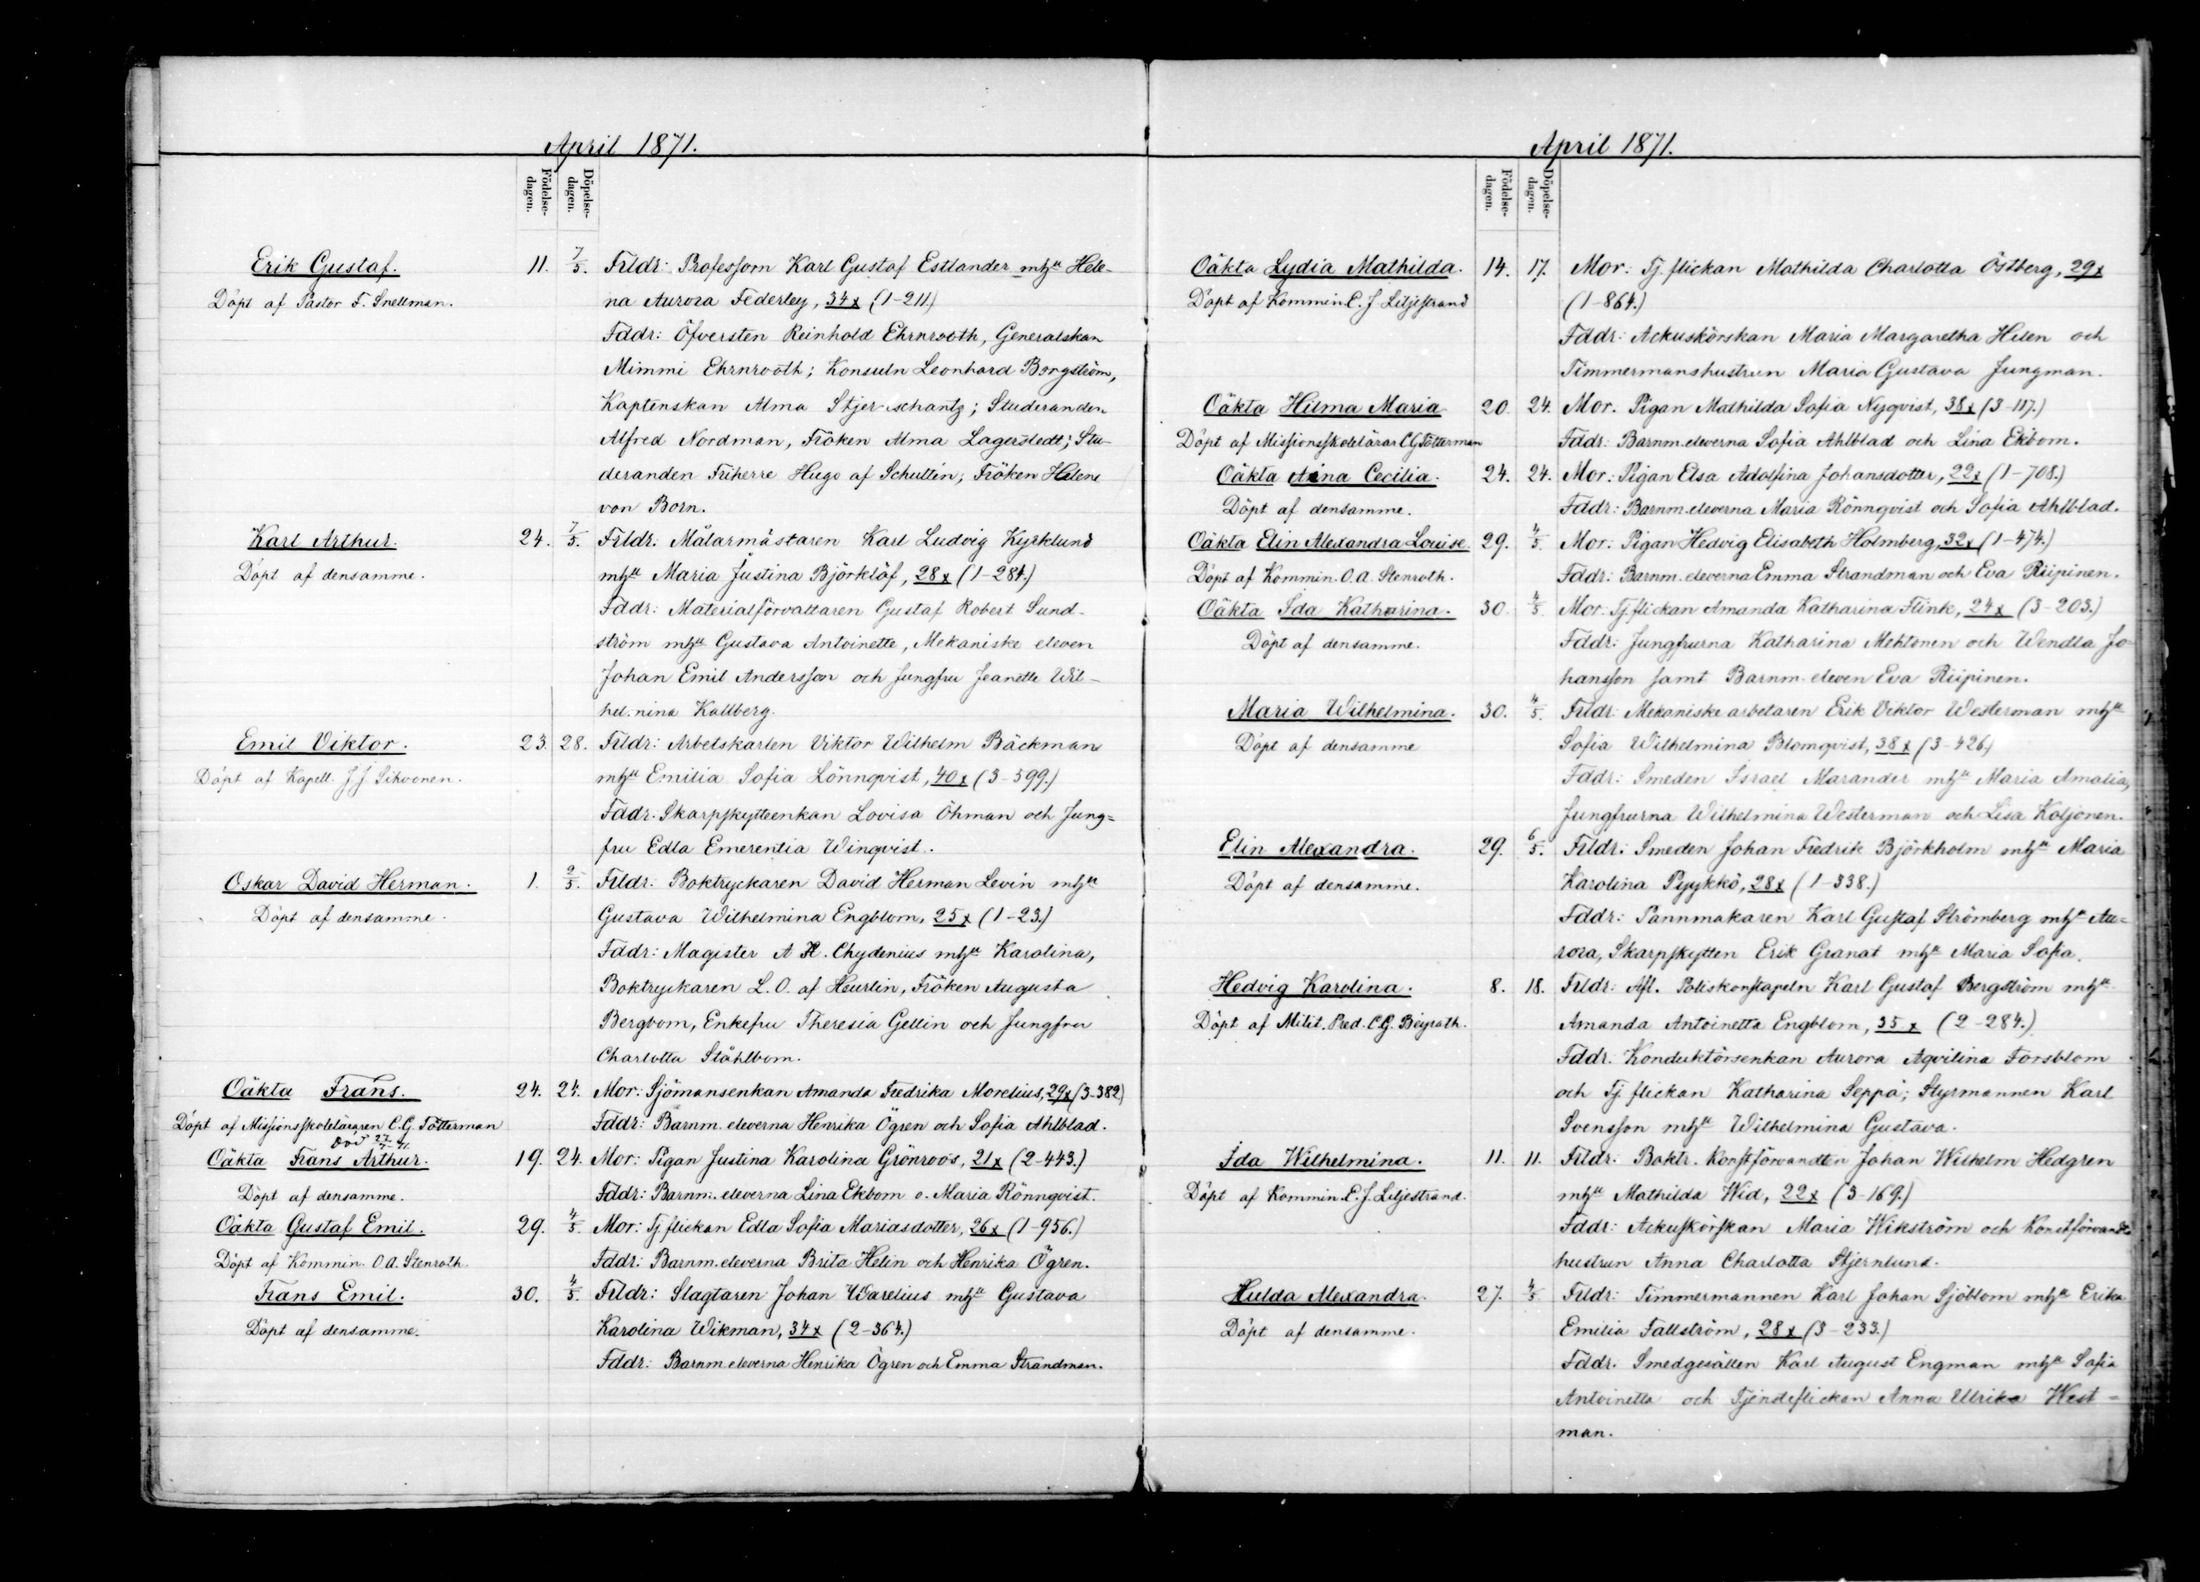 April 1871.
Födelse-dagen.
Döpelse-dagen.
Erik Gustaf. 11. 7/5. Frldr: Professorn Karl Gustaf Estlander mhu Hele-
Döpt af Pastor F. Snellman. na Aurora Federley, 34 x (1-211)
Fddr: Öfversten Reinhold Ehrnrooth, Generalskan
Mimmi Ehrnrooth; Konsuln Leonhard Borgström,
Kaptenskan Alma Stjernschantz; Studeranden
Alfred Nordman, Fröken Alma Lagerstedt; Stu-
deranden Friherre Hugo af Schultén; Fröken Helene
von Born.
Karl Arthur. 24. 7/5. Frldr. Målarmästaren Karl Ludvig Kyrklund
Döpt af densamme. mhu Maria Justina Björklöf, 28 x (1-284.)
Fddr: Materialförvaltaren Gustaf Robert Sund-
ström mhu Gustava Antoinette, Mekaniske eleven
Johan Emil Andersson och Jungfru Jeanette Wil-
helmina Kallberg.
Emil Viktor. 23. 28. Frldr: Arbetskarlen Viktor Wilhelm Bäckman
Döpt af Kapell. J J Sihvonen. mhu Emilia Sofia Lönnqvist, 40 x (3-599.)
Fddr. Skarpskytteenkan Lovisa Öhman och Jung=
fru Edla Emerentia Winqvist.
Oskar David Herman. 1. 2/5. Frldr: Boktryckaren David Herman Levin mhu
Döpt af densamme. Gustava Wilhelmina Engblom, 25 x (1-23.)
Fddr: Magister A H. Chydenius mhu Karolina,
Boktryckaren L. O. af Heurlin, Fröken Augusta
Bergbom, Enkefru Theresia Gellin och Jungfru
Charlotta Ståhlbom.
Oäkta Frans. 24. 24. Mor: Sjömansenkan Amanda Fredrika Morelius, 29 x (3-382)
Döpt af Missionsskoleläraren C.G. Tötterman Fddr: Barnm. eleverna Henrika Ögren och Sofia Ahlblad.
Död 27/4 71.
Oäkta Frans Arthur. 19. 24. Mor: Pigan Justina Karolina Grönroos, 21 x (2-443.)
Döpt af densamme. Fddr: Barnm. eleverna Lina Ekbom o. Maria Rönnqvist.
Oäkta Gustaf Emil. 29. 4/5. Mor: Tj flickan Edla Sofia Mariasdotter, 26 x (1-956.)
Döpt af Kommin. O.A. Stenroth. Fddr: Barnm. eleverna Brita Helin och Henrika Ögren.
Frans Emil. 30. 4/5. Frldr: Slagtaren Johan Warelius mhu Gustava
Döpt af densamme. Karolina Wikman, 34 x (2-364.)
Fddr: Barnm eleverna Henrika Ögren och Emma Strandman.
April 1871.
Födelse-dagen.
Döpelse-dagen.
Oäkta Lydia Mathilda. 14. 17. Mor: Tj. flickan Mathilda Charlotta Östberg, 29 x
Döpt af Kommin C. J Liljestrand (1-864.)
Fddr: Ackuskörskan Maria Margaretha Hilen och
Timmermanshustrun Maria Gustava Jungman.
Oäkta Hilma Maria 20. 24. Mor. Pigan Mathilda Sofia Nyqvist, 38 x (3-117.)
Döpt af Missionsskolelärar CG Tötterman Fddr: Barnm. eleverna Sofia Ahlblad och Lina Ekbom.
Oäkta Aina Cecilia. 24. 24. Mor: Pigan Elsa Adolfina Johansdotter, 22 x (1-708.)
Döpt af densamme. Fddr: Barnm. eleverna Maria Rönnqvist och Sofia Ahlblad.
Oäkta Elin Alexandra Louise. 29. 4/5. Mor: Pigan Hedvig Elisabeth Holmberg, 32 x (1-474.)
Döpt af Kommin. O.A. Stenroth. Fddr: Barnm. eleverna Emma Strandman och Eva Riipinen.
Oäkta Ida Katharina. 30. 4/5. Mor: Tj. flickan Amanda Katharina Flink, 24 x (3-203.)
Döpt af densamme. Fddr: Jungfrurna Katharina Mehtonen och Wendla Jo-
hansson samt Barnm. eleven Eva Riipinen.
Maria Wilhelmina. 30. 4/5. Frldr: Mekaniske arbetaren Erik Viktor Westerman mhu
Döpt af densamme Sofia Wilhelmina Blomqvist, 38 x (3-426)
Fddr: Smeden Israel Marander mhu Maria Amalia,
Jungfrurna Wilhelmina Westerman och Lisa Koljonen.
Elin Alexandra. 29. 6/5. Frldr: Smeden Johan Fredrik Björkholm mhu Maria
Döpt af densamme. Karolina Pyykkö, 28 x (1-338.)
Fddr: Pannmakaren Karl Gustaf Strömberg mhu Au=
rora, Skarpskytten Erik Granat mhu Maria Sofia.
Hedvig Karolina. 8. 18. Frldr: Afl. Poliskonstapeln Karl Gustaf Bergström mhu
Döpt af Milit. Pred. C.G. Beyrath. Amanda Antoinetta Engblom, 35 x (2-284.)
Fddr. Konduktörsenkan Aurora Aqvilina Forsblom
och Tj. flickan Katharina Seppä; Styrmannen Karl
Svensson mhu Wilhelmina Gustava.
Ida Wilhelmina. 11. 11. Frldr: Boktr. konstförvandten Johan Wilhelm Hedgren
Döpt af Kommin. C. J. Liljestrand. mhu Mathilda Wid, 22 x (3-169.)
Fddr: Ackuskörskan Maria Wikström och Konstförvandts
hustrun Anna Charlotta Stjernlund.
Hulda Alexandra. 27. 4/5. Frldr: Timmermannen Karl Johan Sjöblom mhu Erika
Döpt af densamme. Emilia Fallström, 28 x (3-233.)
Fddr. Smedgesällen Karl August Engman mhu Sofia
Antoinetta och Tjendeflickan Anna Ulrika West=
man.